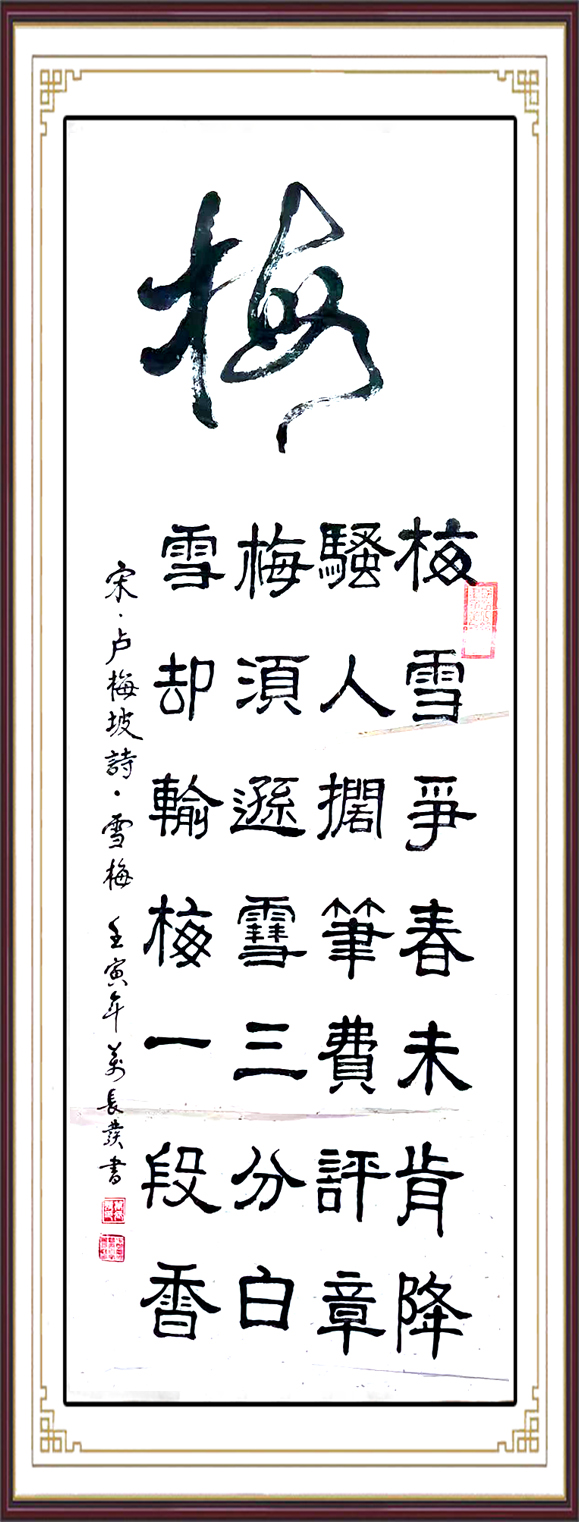 梅
梅雪爭春未肯降
騷人擱筆費評章
梅須遜雪三分白
雪却輸梅一段香
宋·卢梅坡詩·雪梅 壬寅年 萬長發書